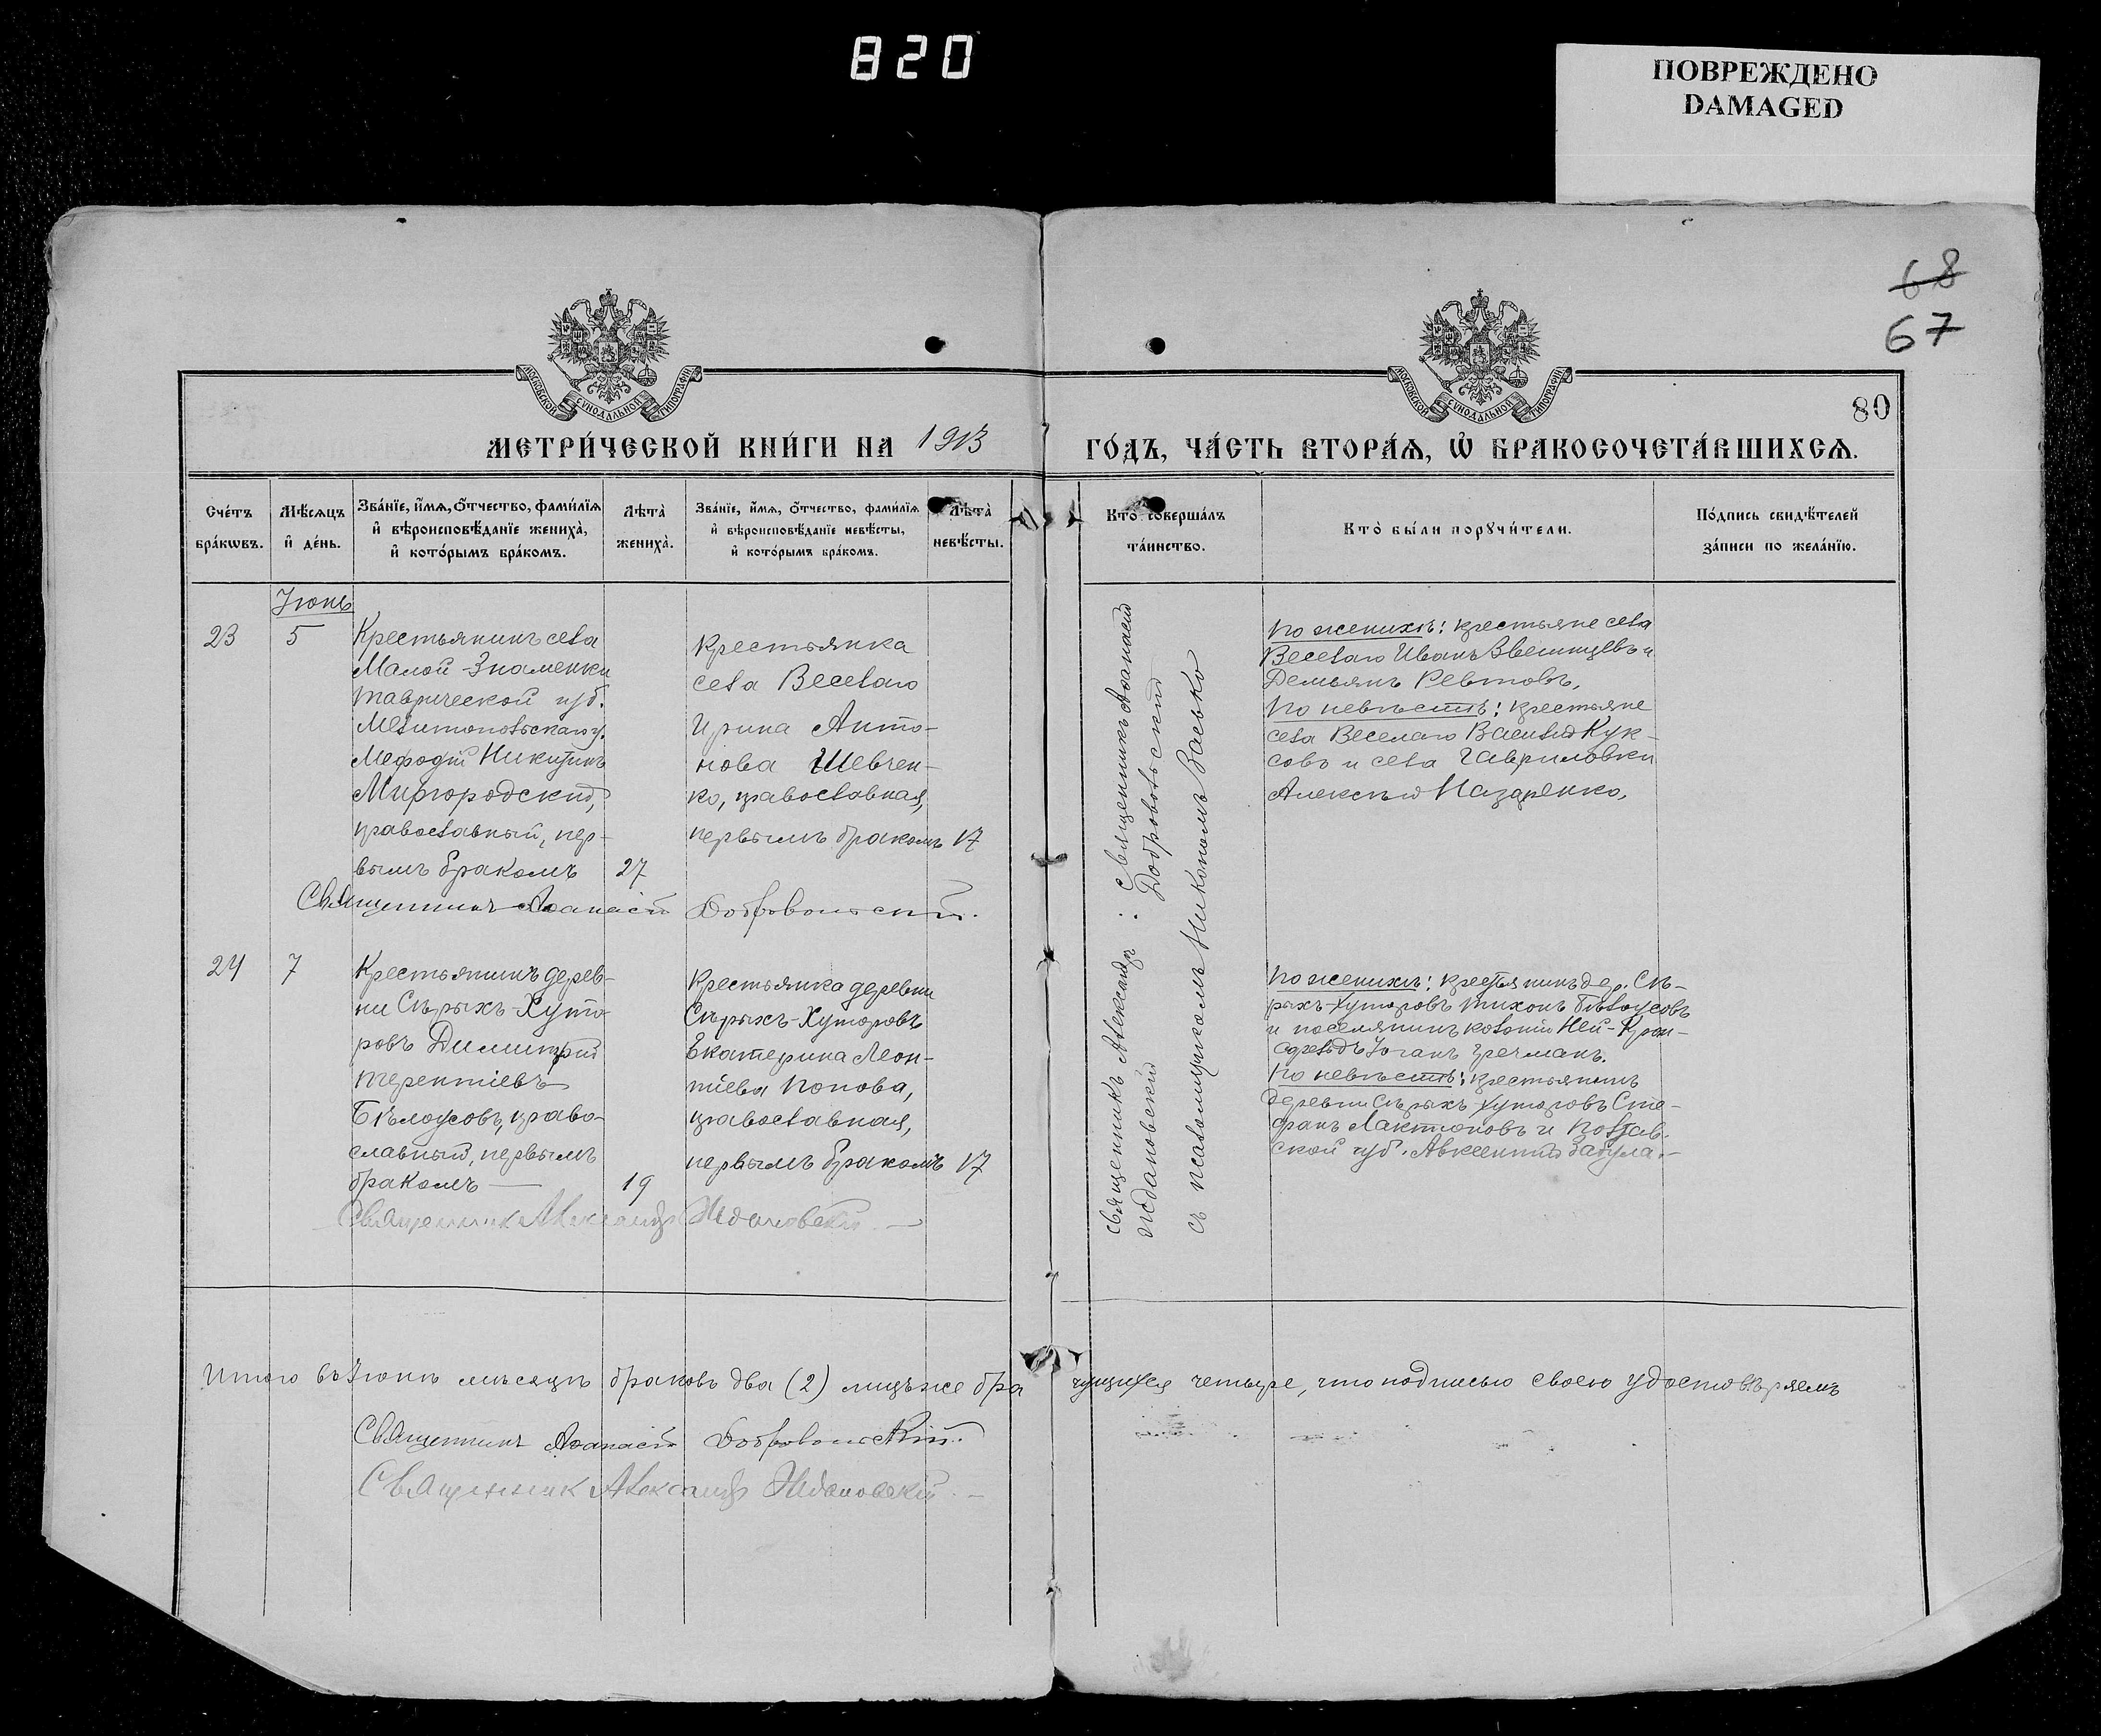 820
ПОВРЕЖДЕНО
DAMAGED
68
67
80
МОСКОВСКОЙ СУНОДАЛЬНОЙ ТИПОГРАФІИ
МОСКОВСКОЙ СУНОДАЛЬНОЙ ТИПОГРАФІИ
МЕТРИ́ЧЕСКОЙ КНИ́ГИ НА 1913 ГО́ДЪ, ЧА́СТЬ ВТОРА́Ѧ, Ѡ҆ БРАКОСОЧЕТА́ВШИХСѦ.
Сче́тъ
бра́кѡвъ.
Мѣ́сѧцъ
и҆ де́нь.
Зва́нїе, и҆́мѧ, ѻ҆́тчество, фами́лїѧ
и҆ вѣроисповѣ́данїе жениха̀,
и҆ кото́рымъ бра́комъ.
Лѣта̀
жениха̀.
Зва́нїе, и҆́мѧ, ѻ҆́тчество, фами́лїѧ
и҆ вѣроисповѣ́данїе невѣ́сты,
и҆ кото́рымъ бра́комъ.
Лѣта̀
невѣ́сты.
Кто̀ соверша́лъ
та́инство.
Кто̀ бы́ли порꙋчи́тели.
По́дпись свидѣ́телей
за́писи по жела́нїю.
Іюнь
23
5
Крестьянинъ села
Малой-Знаменки
Таврической губ.
Мелитопольскаго у.
Мефодій Никитинъ
Миргородскій,
православный, пер-
вымъ бракомъ
27
Крестьянка
села Веселаго
Ирина Анто-
нова Шевчен-
ко, православная,
первымъ бракомъ
17
Священникъ Аѳанасій Добровольскій.
Священникъ Аѳанасій
Добровольскій
По женихѣ: крестьяне села
Веселаго Иванъ Звенинцевъ и
Демьянъ Ревтовъ,
По невѣстѣ: крестьяне
села Веселаго Василій Кук-
совъ и села Гавриловки
Алексѣй Назаренко,
24
7
Крестьянинъ дерев-
ни Сѣрыхъ-Хуто-
ровъ Димитрій
Терентіевъ
Бѣлоусовъ, право-
славный, первымъ
бракомъ
19
Крестьянка деревни
Сѣрыхъ-Хуторовъ
Екатерина Леон-
тіева Попова,
православная,
первымъ бракомъ
17
Священник Александр Ждановскій
Священникъ Александръ
Ждановскій
съ псаломщикомъ Никономъ Васько
По женихѣ: крестьянинъ дер. Сѣ-
рыхъ-Хуторовъ Тихонъ Бѣлоусовъ
и поселянинъ колоніи Ней-Крон-
сфельдъ Іоганъ
По невѣстѣ: крестьянинъ
деревни Сѣрыхъ Хуторовъ Сте-
фанъ Лактіоновъ и Полтав-
ской губ. Авксентій Забула.
Итого въ Іюнѣ мѣсяцѣ браковъ два (2) лицъ же бра чущихся четыре, что подписью своею удостовѣряемъ
Священникъ Аѳанасій Добровольскій.
Священник Александр Ждановскій